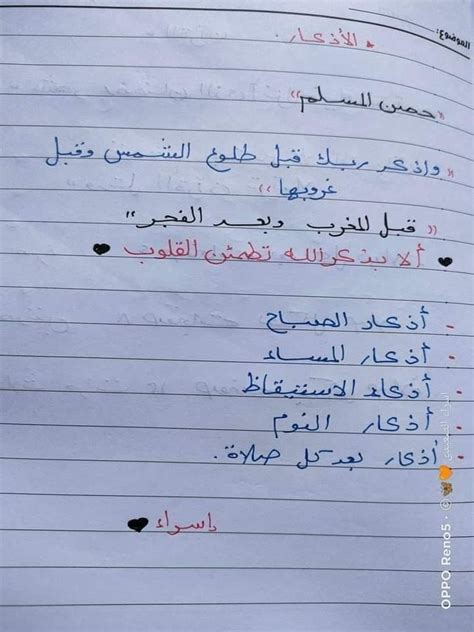 الموضوع:
* الأذكار.
"حصن المسلم"
"وإذكر ربك قبل طلوع الشمس وقبل
غروبها"
"قبل المغرب وبعد الفجر"
♥ ألا بذكر الله تطمئن القلوب ♥
- أذكار الصباح
- أذكار المساء
- أذكار الاستيقاظ
- أذكار النوم
- أذكار بعد كل صلاة.
إسراء ♥
OPPO Reno5 · ©